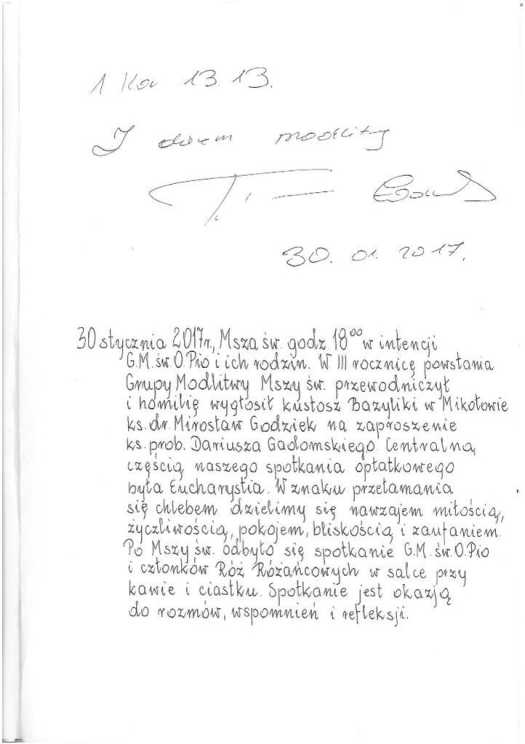 1 Kor 13.13.
modlitwy
30. 01. 2017.
30 stycznia 2017r., Msza św. godz 18⁰⁰ w intencji
G.M. św O.Pio i ich rodzin. W III rocznicę powstania
Grupy Modlitwy Mszy św. przewodniczył
i homilię wygłosił kustosz Bazyliki w Mikołowie
ks. dr. Mirosław Godziek na zaproszenie
ks. prob. Dariusza Gadomskiego. Centralną
częścią naszego spotkania opłatkowego
była Eucharystia. W znaku przełamania
się chlebem dzielimy się nawzajem miłością,
życzliwością, pokojem, bliskością i zaufaniem.
Po Mszy św. odbyło się spotkanie G.M. św. O.Pio
i członków Róż Różańcowych w salce przy
kawie i ciastku. Spotkanie jest okazją
do rozmów, wspomnień i refleksji.